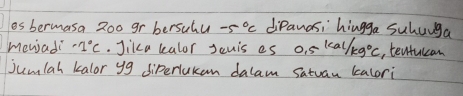 es bermasa 200 gr bersuhu -5°c diPanasi hingga suhunya
menjadi -2°c. Jika kalor jenis es 0,5 kal/kg°c, tentukan
Jumlah kalor yg diperlukan dalam satuan kalori